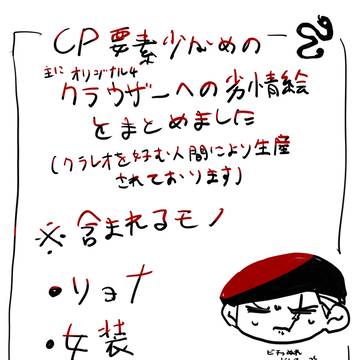 CP要素少なめの
主に オリジナル4
クラウザーへの劣情絵
をまとめました
(クラレオを好む人間により生産
されております)
※含まれるモノ
・リョナ
・女装